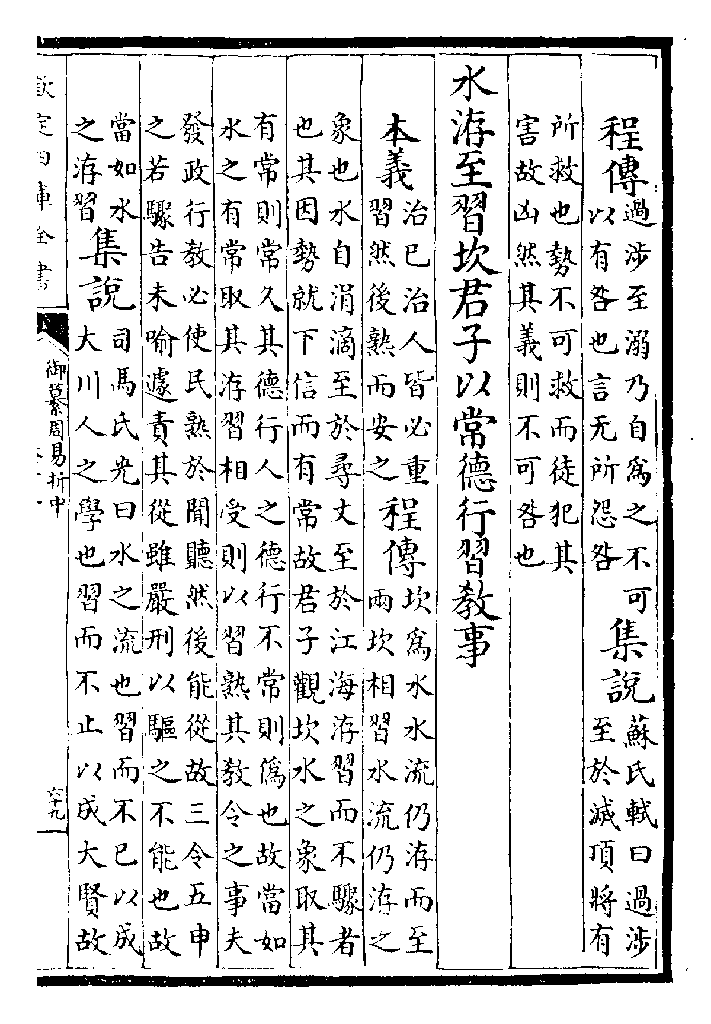 程傳過涉至溺乃自爲之不可
以有咎也言无所怨咎
集說蘇氏軾曰過涉
至於滅項將有
所救也勢不可救而徒犯其
害故凶然其義則不可咎也
水洊至習坎君子以常德行習教事
本義治已治人皆必重
習然後熟而安之
程傳坎爲水水流仍洊而至
兩坎相習水流仍洊之
象也水自涓滴至於尋丈至於江海洊習而不驟者
也其因勢就下信而有常故君子觀坎水之象取其
有常則常久其德行人之德行不常則僞也故當如
水之有常取其洊習相受則以習熟其教令之事夫
發政行教必使民熟於聞聽然後能從故三令五申
之若驟告未喻遽責其從雖嚴刑以驅之不能也故
當如水
之洊習
集說司馬氏光曰水之流也習而不已以成
大川人之學也習而不止以成大賢故
欽定四庫全書
御纂周易折中
六十九